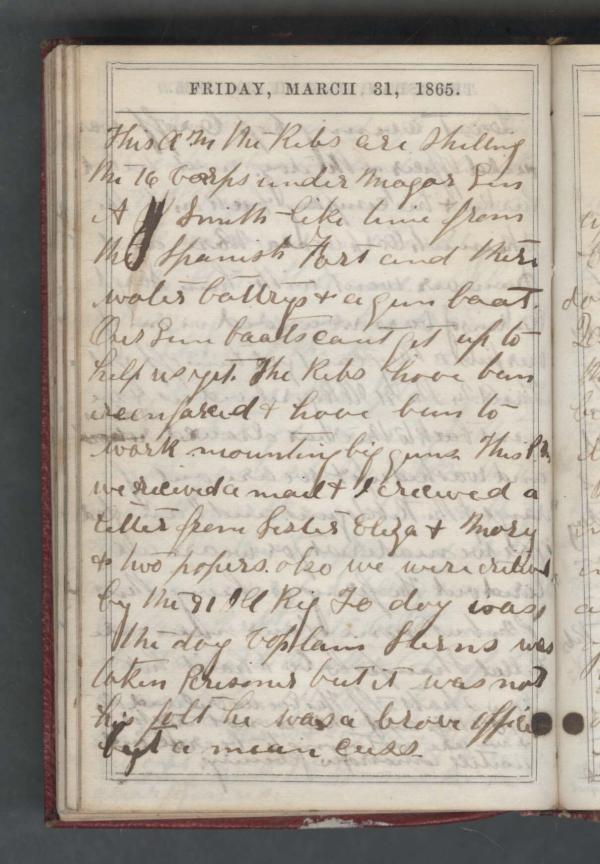 FRIDAY, MARCH 31, 1865.
This A M the Rebs are Shelling
the 16 Corps under Magar Gen
A J Smith like time from
the Spanish Fort and there
water battrys + a gun boat.
Our Gun boats cant git up to
help us yet. The Rebs have ben
reenforced + have ben to
work mounting big guns. This P M
we recieved a mail + I recieved a
letter from Sister Eliza + Mary
+ two papers. also we were
by the 91 Ill Rig To day was
the day Captain Sterns was
taken Prisoner but it was not
his folt he was a brave officer
but a mean cuss